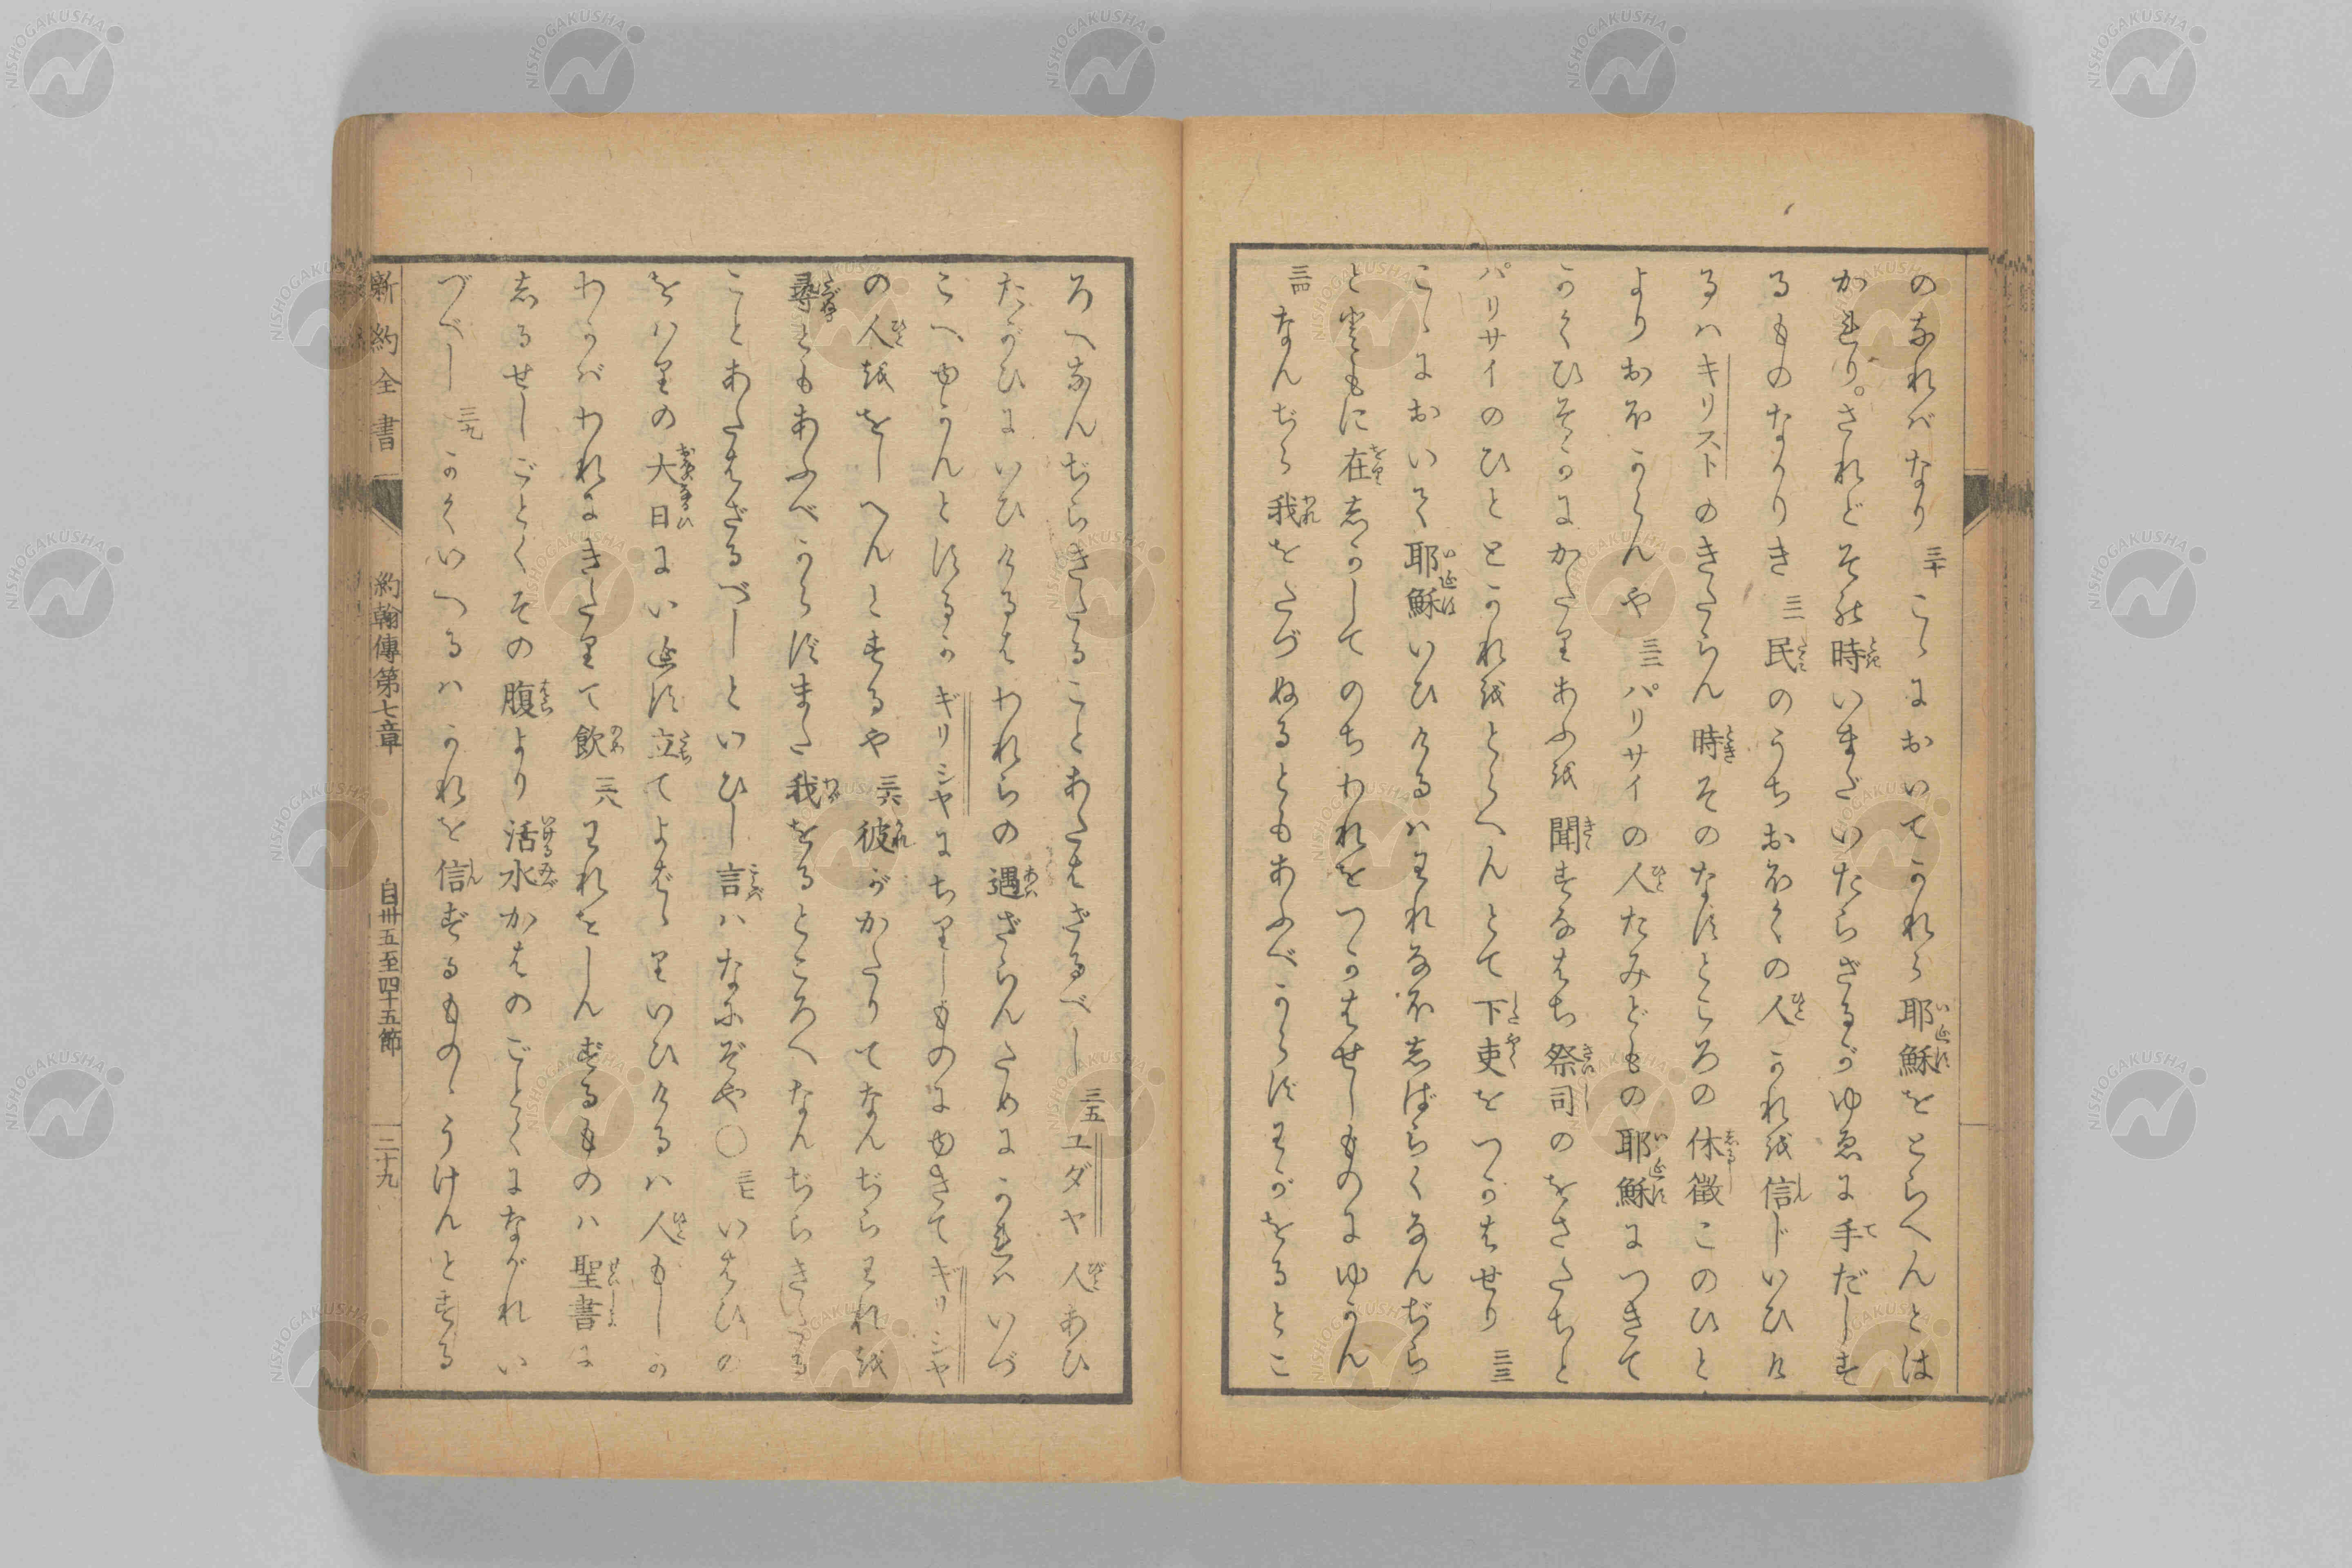 のなれバなり 三十 こゝにおいてかれら耶穌をとらへんとは
かれり。されどその時いまだいたらざるがゆゑに手だしす
るものなかりき 三一 民のうちおほくの人かれを信じいひけ
るハキリストのきたらん時そのなすところの休徴このひと
よりおほからんや 三二 パリサイの人たみどもの耶穌につきて
かくひそかにかたりあふを聞すなはち祭司のをさたちと
パリサイのひととかれをとらへんとて下吏をつかはせり 三三
こゝにおいて耶穌いひけるハわれなほしばらくなんぢら
とともに在しかしてのちわれをつかはせしものにゆかん
三四 なんぢら我をたづぬるともあふべからずわがをるとこ
ろへなんぢらきたることあたはざるべし 三五 ユダヤ人あひ
たがひにいひけるはわれらの遇ざらんためにかれハいづ
こへゆかんとするかギリシヤにちりしものにゆきてギリシヤ
の人ををしへんとするや 三六 彼がかたりてなんぢらわれを
尋ともあふべからずまた我をるところへなんぢらきたる
ことあたはざるべしといひし言ハなにぞや〇 三七 いはひの
をハりの大日にいえす立てよばゝりいひけるハ人もしか
わかバわれにきたりて飲 三八 われをしんずるものハ聖書に
しるせしごとくその腹より活水かはのごとくにながれい
づべし 三九 かくいへるハかれを信ずるものゝうけんとする
新約全書 約翰傳第七章 自卅五至四十五節 二十九
NISHOGAKUSHA